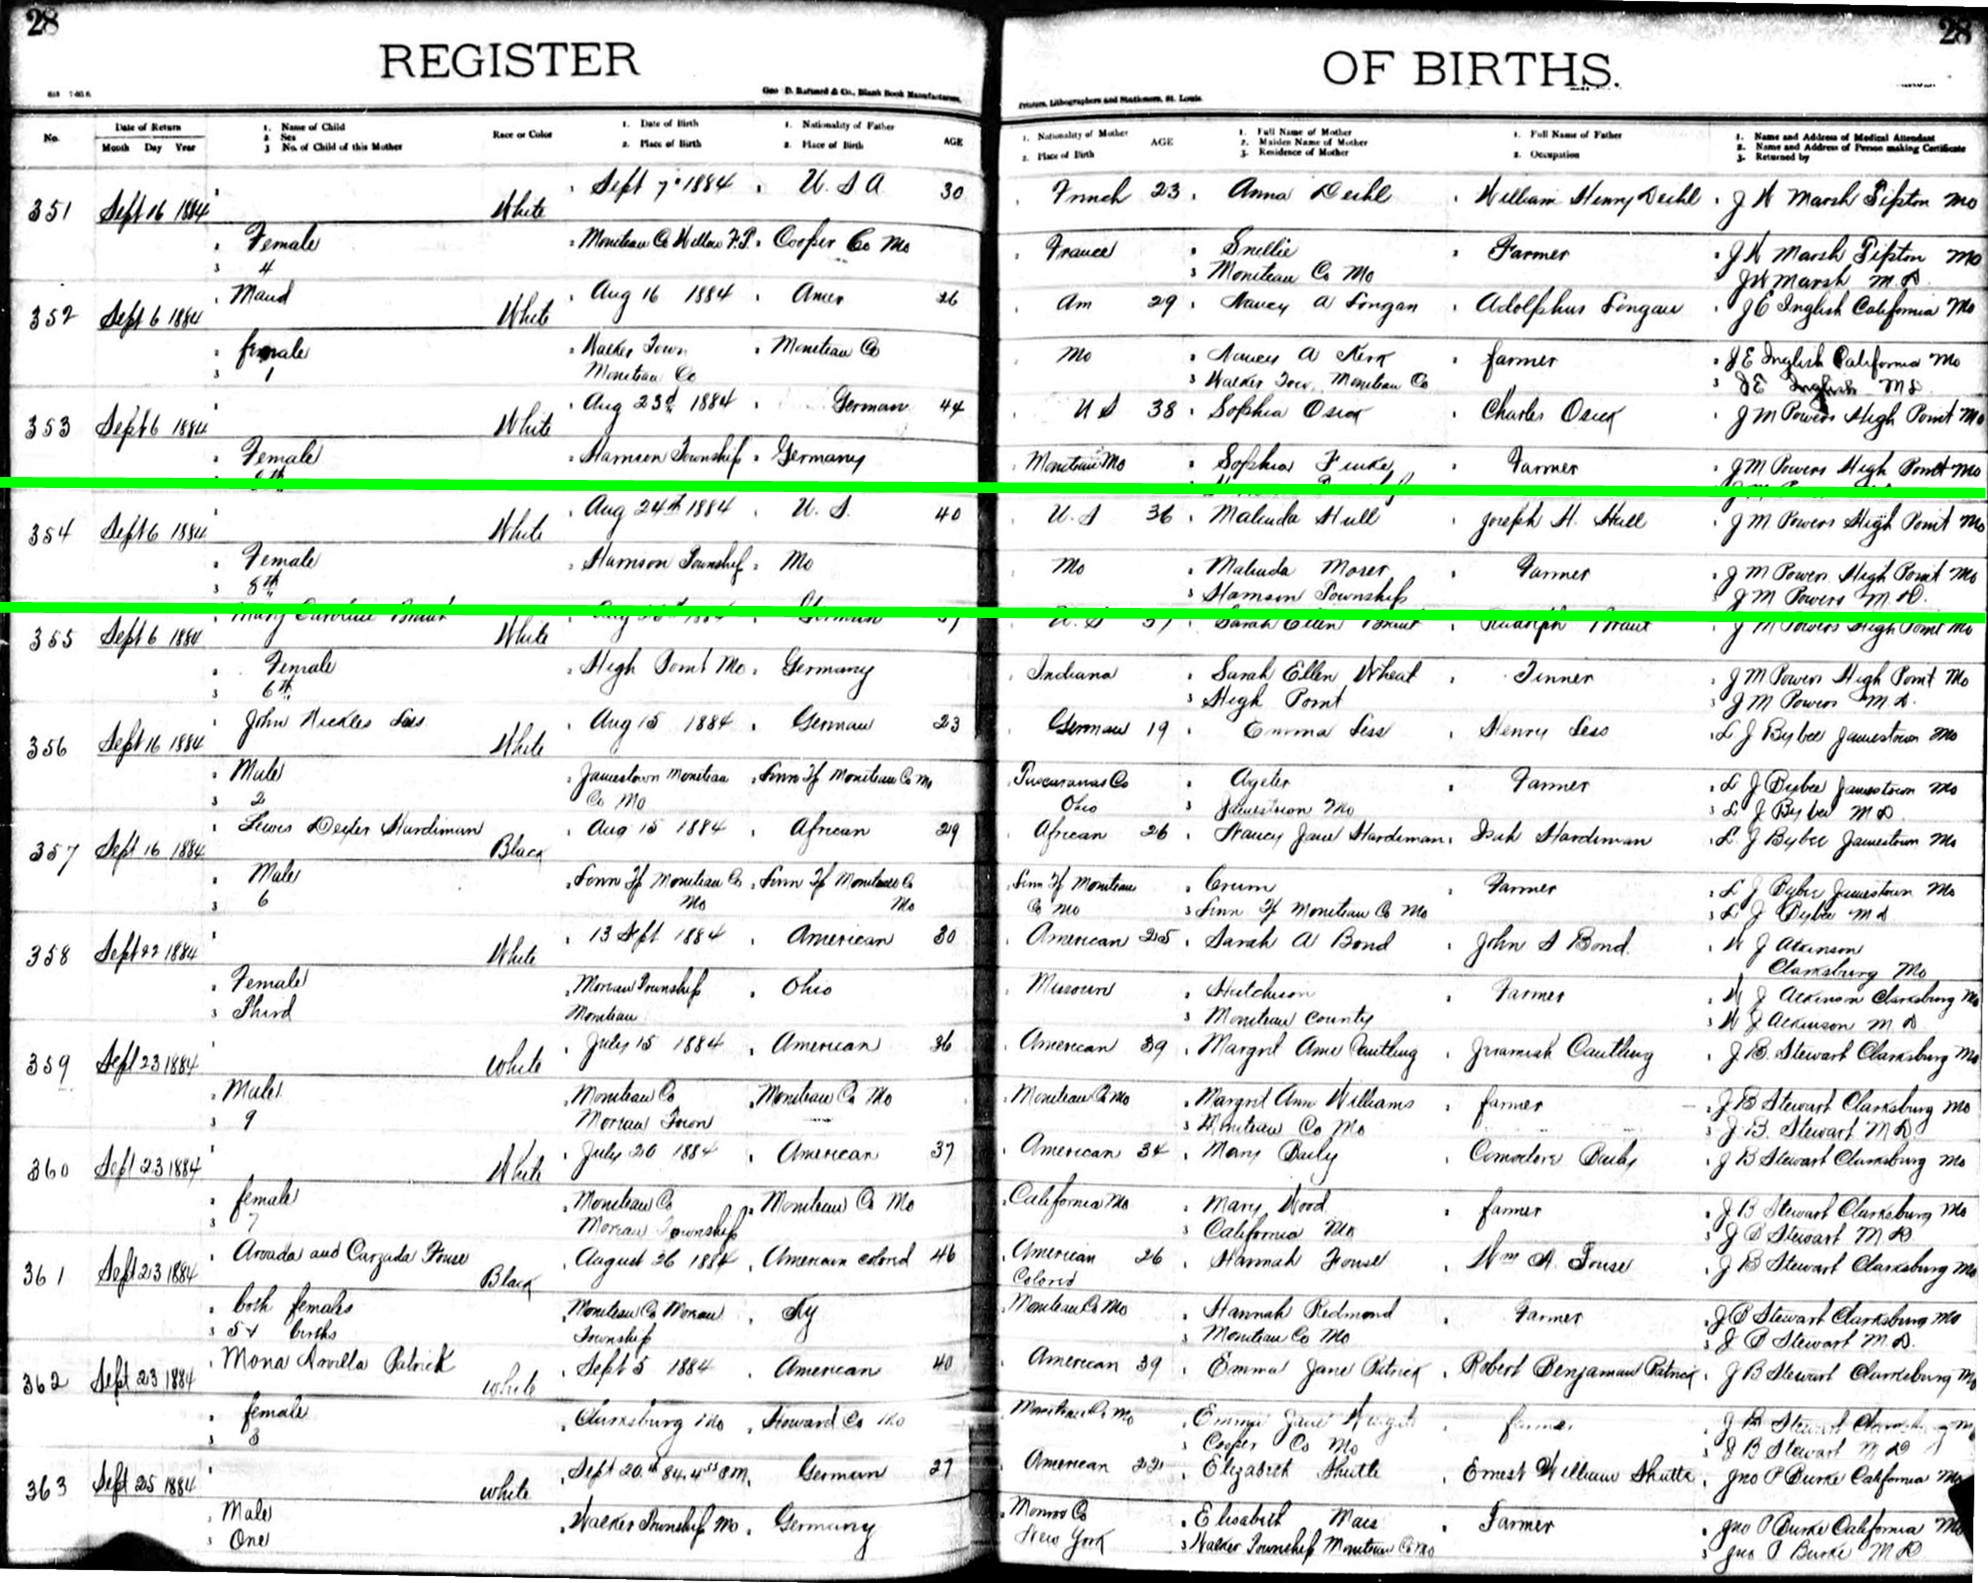 28 28
REGISTER OF BIRTHS.
Geo. D. Barnard & Co., Blank Book Manufacturers, Printers, Lithographers and Stationers, St. Louis
No. Date of Return 1. Name of Child Race or Color 1. Date of Birth 1. Nationality of Father AGE 1. Nationality of Mother AGE 1. Full Name of Mother 1. Full Name of Father 1. Name and Address of Medical Attendant
Month Day Year 2. Sex 2. Place of Birth 2. Place of Birth 2. Place of Birth 2. Maiden Name of Mother 2. Occupation 2. Name and Address of Person making Certificate
3. No. of Child of this Mother 3. Residence of Mother 3. Returned by
351 Sept 16 1884 White Sept 7 1884 U. S A 30 French 23 Anna Deihl William Henry Deihl J W Marsh Tipton Mo
Female Moniteau Co Willow F.T. Cooper Co Mo France Snellie Farmer J W Marsh Tipton Mo
4 Moniteau Co Mo J W Marsh M. D.
352 Sept 6 1884 Maud White Aug 16 1884 Amer 26 Am 29 Nancy A Longan Adolphus Longan J E Inglish California Mo
female Walker Town Moniteau Co Mo Nancy A Kirk farmer J E Inglish California Mo
1 Moniteau Co Walker Tow. Moniteau Co J E Inglish M D
353 Sept 6 1884 White Aug 23d 1884 German 44 U S 38 Sophia Osick Charles Osick J M Powers High Point Mo
Female Harrison Township Germany Moniteau Mo Sophia Finke Farmer J M Powers High Point Mo
354 Sept 6 1884 White Aug 24th 1884 U. S. 40 U. S 36 Malinda Hull Joseph H. Hull J M Powers High Point Mo
Female Harrison Township Mo Mo Malinda Moser Farmer J M Powers High Point Mo
8th Harrison Township J M Powers M. D.
355 Sept 6 1884 Mary Caroline White 1884 German U. S Sarah Ellen Rudolph J M Powers High Point Mo
Female High Point Mo Germany Indiana Sarah Ellen Wheat Tinner J M Powers High Point Mo
6th High Point J M Powers M. D.
356 Sept 16 1884 John Nickles Less White Aug 15 1884 German 23 German 19 Emma Less Henry Less L J Bybee Jamestown Mo
Male Jamestown Moniteau Linn Tp Moniteau Co Mo Tuscarawas Co Ageter Farmer L J Bybee Jamestown Mo
2 Co Mo Ohio Jamestown Mo L J Bybee M D.
357 Sept 16 1884 Lewis Dexter Hardiman Black Aug 15 1884 African 29 African 26 Nancy Jane Hardeman Isah Hardiman L. J Bybee Jamestown Mo
Male Linn Tp Moniteau Co Linn Tp Moniteau Co Linn Tp Moniteau Crum Farmer L J Bybee Jamestown Mo
6 Mo Mo Co Mo Linn Tp Moniteau Co Mo L J Bybee M D
358 Sept 22 1884 White 13 Sept 1884 American 30 American 25 Sarah A Bond John S Bond. W J Atkinson
Clarksburg Mo
Female Moreau Township Ohio Missouri Hutchison Farmer W J Atkinson Clarksburg Mo
Third Moniteau Moniteau County W J Atkinson M. D
359 Sept 23 1884 White July 15 1884 American 36 American 39 Margret Ann Cautling Jeramiah Cautling J B. Stewart Clarksburg Mo
Male Moniteau Co Moniteau Co Mo Moniteau Co Mo Margret Ann Williams farmer J B Stewart Clarksburg Mo
9 Moreau Town Moniteau Co Mo J. B. Stewart M D
360 Sept 23 1884 White July 20 1884 American 37 American 34 Mary Baily Comodore Baily J B Stewart Clarksburg Mo
female Moniteau Co Moniteau Co Mo California Mo Mary Wood farmer J B Stewart Clarksburg Mo
7 Moreau Township California Mo J B Stewart M D
361 Sept 23 1884 Arvada and Carzada Fouse Black August 26 1884 American colored 46 American 26 Hannah Fouse Wm A. Fouse J B Stewart Clarksburg Mo
Colored
both females Moniteau Co Moreau Ky Moniteau Co Mo Hannah Redmond Farmer J B Stewart Clarksburg Mo
5 births Township Moniteau Co Mo J B Stewart M. D.
362 Sept 23 1884 Mona Arvilla Patrick white Sept 5 1884 American 40 American 39 Emma Jane Patrick Robert Benjaman Patrick J B Stewart Clarksburg Mo
female Clarksburg Mo Howard Co Mo Moniteau Co Mo Emma Jane farmer J B Stewart Clarksburg Mo
3 Cooper Co Mo J B Stewart M D
363 Sept 25 1884 white Sept 20th 84. German 27 American 22 Elizabeth Shutte Ernest William Shutte Jno P Burke California Mo
Male Walker Township Mo Germany Monroe Co Elisabeth Mais Farmer Jno P Burke California Mo
One New York Walker Township Moniteau Co Mo Jno P Burke M D